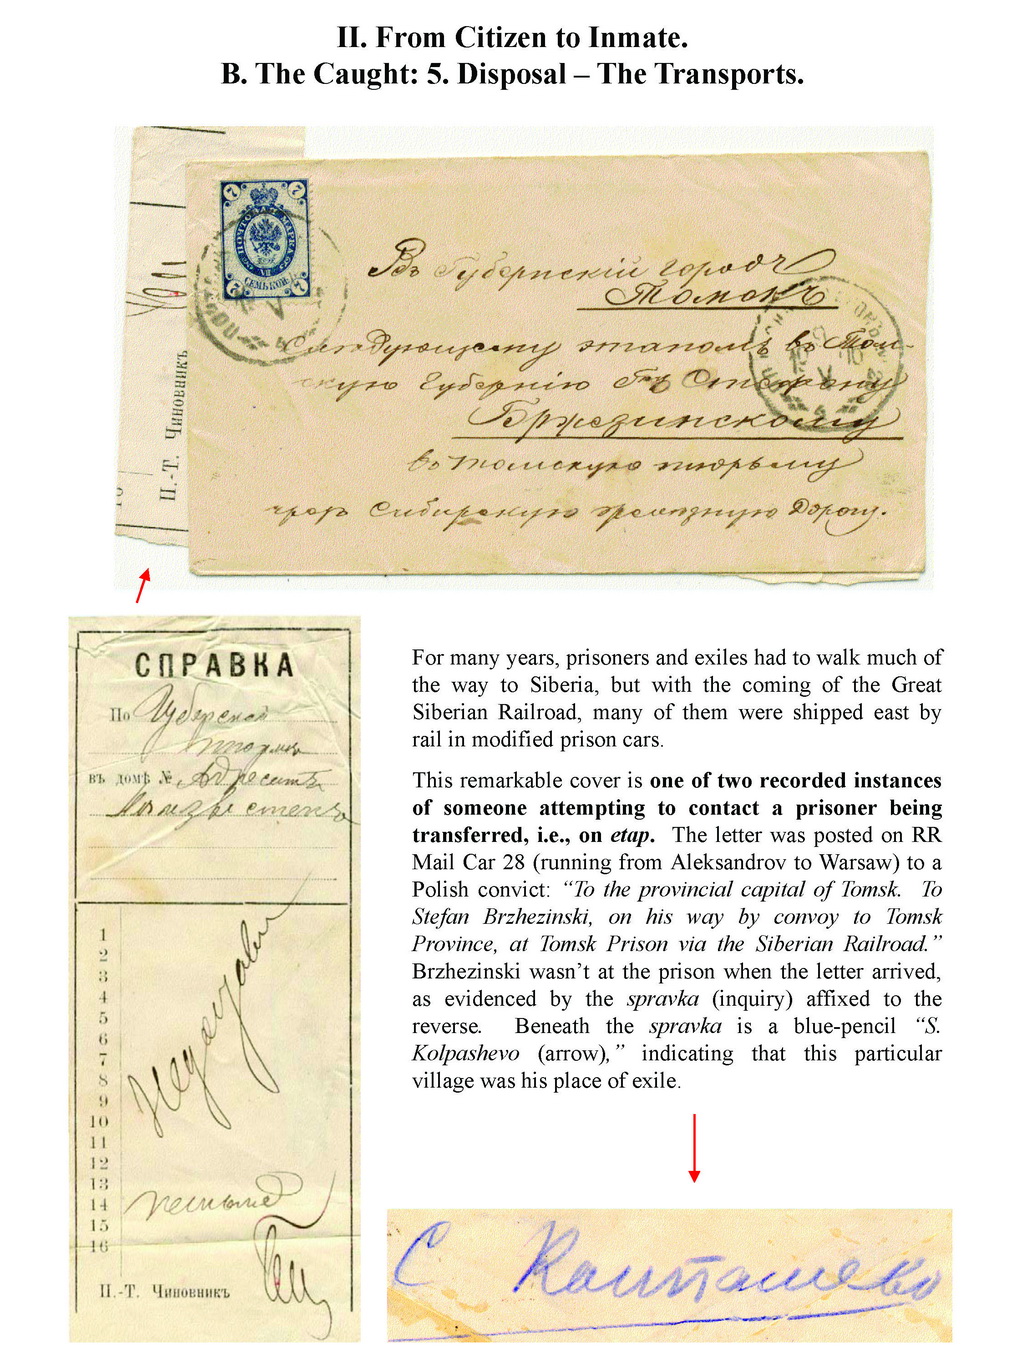 II. From Citizen to Inmate.
B. The Caught: 5. Disposal – The Transports.
7 7
ПОЧТОВАЯ МАРКА
СЕМЬ КОП.
7 7
Въ Губернскій городъ
Томскъ
Слѣдующему этапомъ въ Том-
скую Губернію Гну Стефану
Бржезинскому
въ томскую тюрьму
чрезъ Сибирскую желѣзную Дорогу.
П.-Т. Чиновникъ
СПРАВКА
По Губернской
тюрьмѣ
въ домѣ № Адресатъ
1
2
3
4
5
6
7
8
9
10
11
12
13
14
15
16
П.-Т. Чиновникъ
For many years, prisoners and exiles had to walk much of
the way to Siberia, but with the coming of the Great
Siberian Railroad, many of them were shipped east by
rail in modified prison cars.
This remarkable cover is one of two recorded instances
of someone attempting to contact a prisoner being
transferred, i.e., on etap. The letter was posted on RR
Mail Car 28 (running from Aleksandrov to Warsaw) to a
Polish convict: “To the provincial capital of Tomsk. To
Stefan Brzhezinski, on his way by convoy to Tomsk
Province, at Tomsk Prison via the Siberian Railroad.”
Brzhezinski wasn’t at the prison when the letter arrived,
as evidenced by the spravka (inquiry) affixed to the
reverse. Beneath the spravka is a blue-pencil “S.
Kolpashevo (arrow),” indicating that this particular
village was his place of exile.
С Колпашево